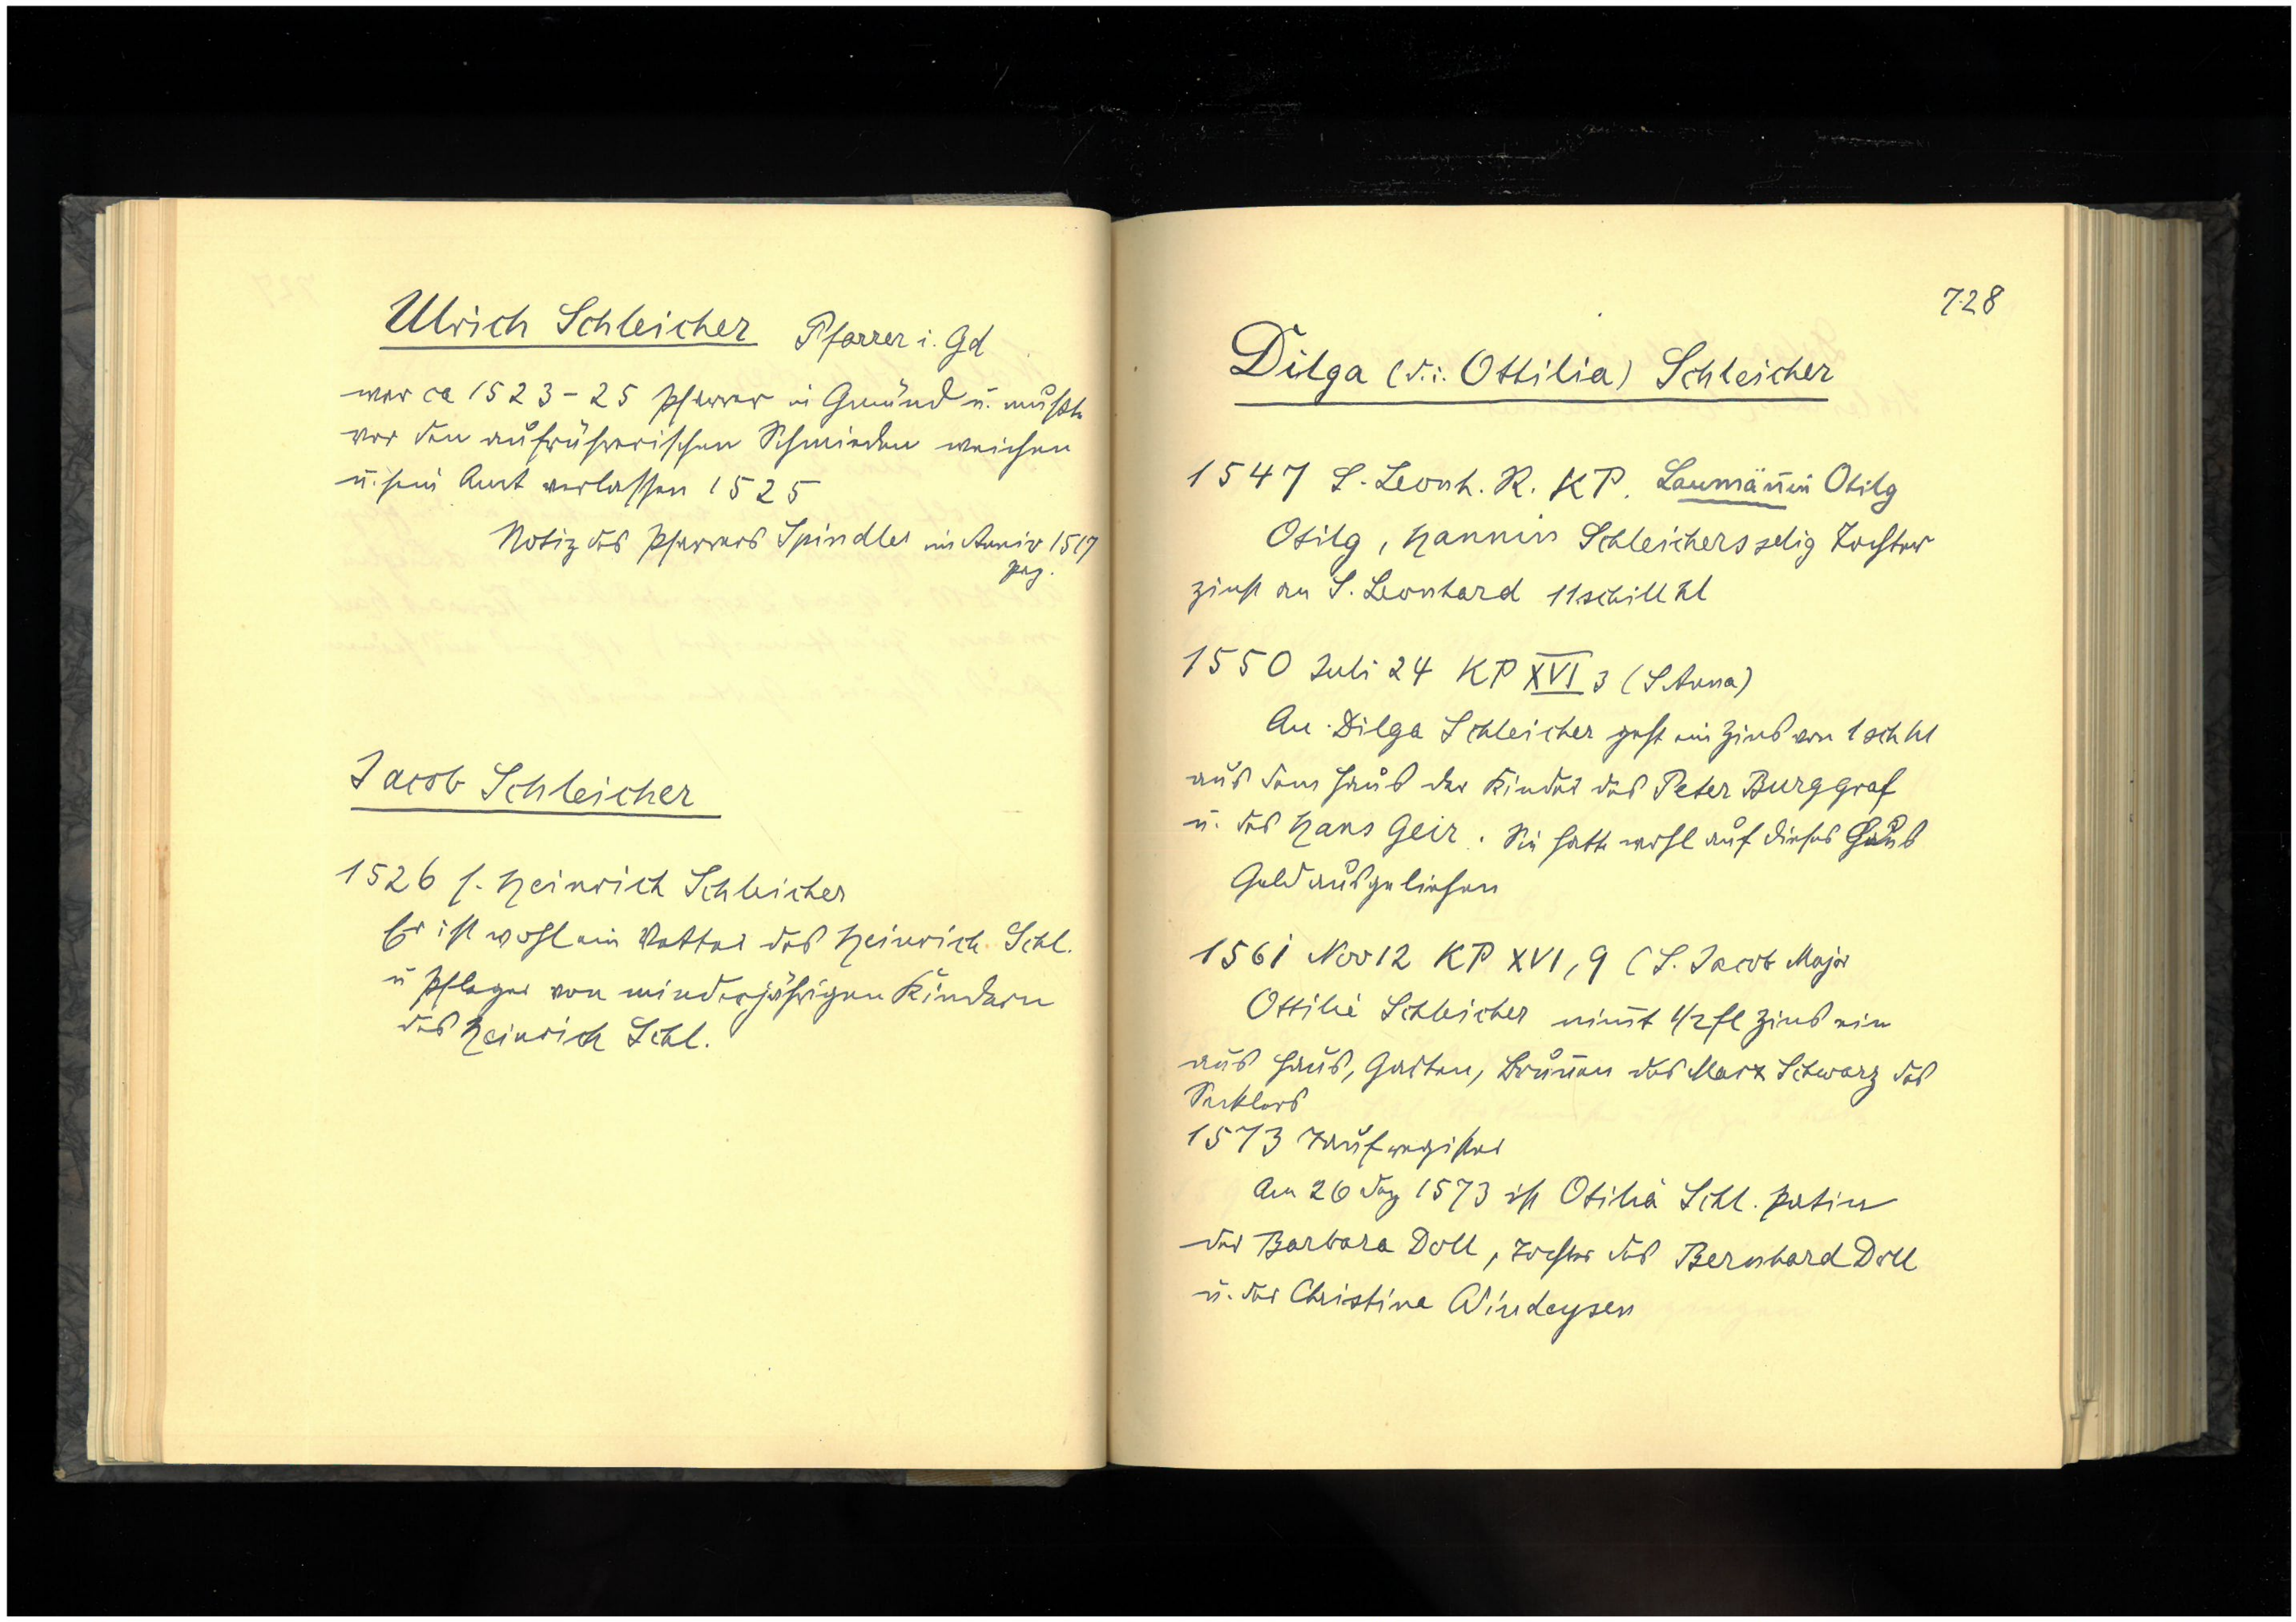 Ulrich Schleicher Pfarrer i. Gd
war ca 1523-25 Pfarrer in Gmünd u. mußte
vor den aufrührerischen Schmieden weichen
u. sein Amt verlassen 1525
Notiz des Pfarrers Spindler im Anniv 1517
pag.
Jacob Schleicher
1526 s. Heinrich Schleicher
Er ist wohl ein Vetter des Heinrich Schl.
u Pfleger von minderjährigen Kindern
des Heinrich Schl.
728
Dilga (d.i. Ottilia) Schleicher
1547 S. Leonh. R. KP. Laumän̄in Otilg
Otilg, Hannin Schleichers selig Tochter
zinst an S. Leonhard 11 schill hl
1550 Juli 24 KP XVI 3 (S Anna)
An Dilga Schleicher geht ein Zins von 1 sch hl
aus dem Haus der Kinder des Peter Burggraf
u. des Hans Geir. Sie hatte wohl auf dieses Haus
Geld ausgeliehen
1561 Nov 12 KP XVI, 9 (S. Jacob Major
Ottilie Schleicher nim̄t 1/2 fl Zins ein
aus Haus, Garten, Brun̄en des Marx Schwarz des
Secklers
1573 Taufregister
Am 26 Dez 1573 ist Otiliä Schl. Patin
der Barbara Doll, Tochter des Bernhard Doll
u. der Christina Windeysen